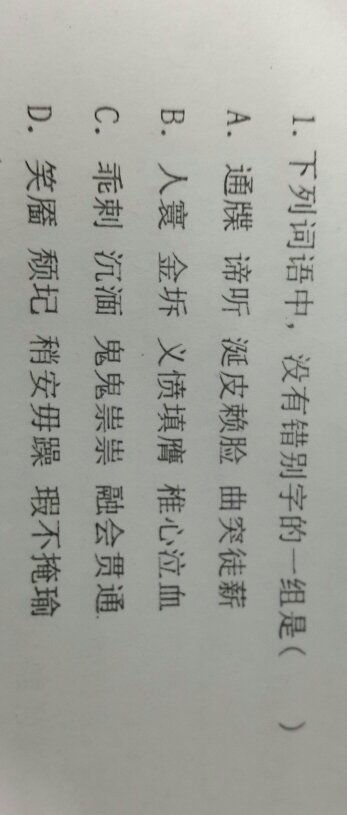 1. 下列词语中，没有错别字的一组是(　　)
A. 通牒 谛听 涎皮赖脸 曲突徒薪
B. 人寰 金坼 义愤填膺 椎心泣血
C. 乖刺 沉湎 鬼鬼崇崇 融会贯通
D. 笑靥 颓圮 稍安毋躁 瑕不掩瑜